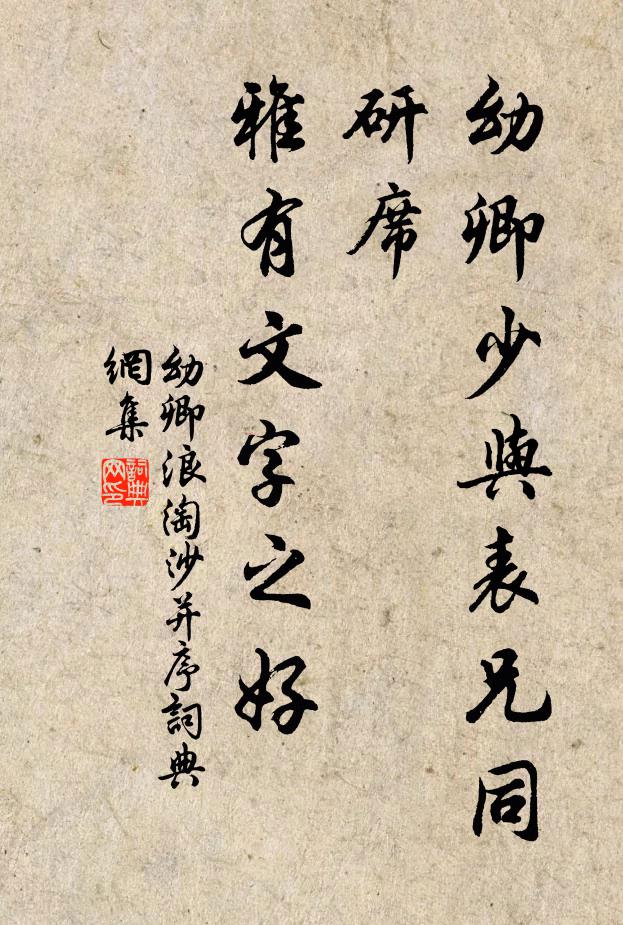 幼卿少與表兄同
研席
雅有文字之好
幼卿浪淘沙并序詞典
網集
詞典网印